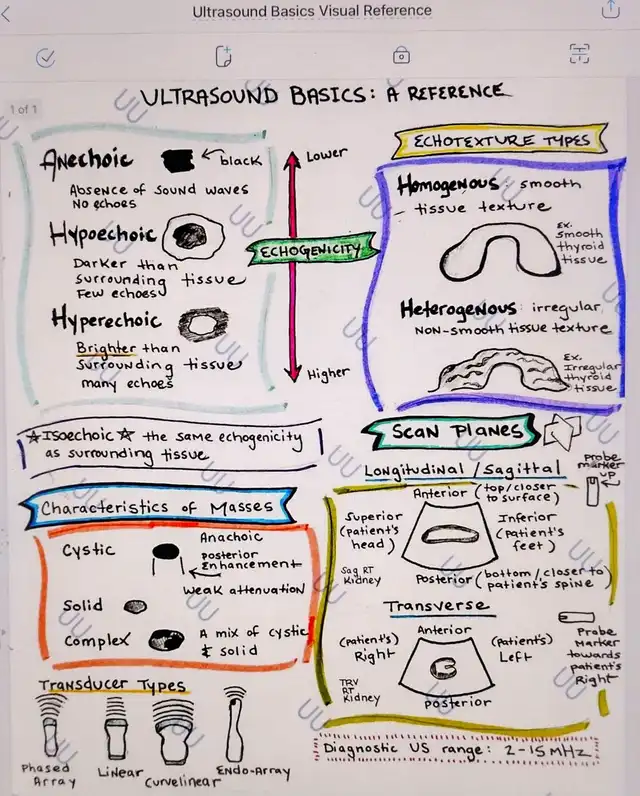 Ultrasound Basics Visual Reference
1 of 1
ULTRASOUND BASICS: A REFERENCE
Anechoic
black
Absence of sound waves
No echoes
Hypoechoic
Darker than
surrounding tissue
Few echoes
Hyperechoic
Brighter than
surrounding tissue
many echoes
Lower
ECHOGENICITY
Higher
ECHOTEXTURE TYPES
Homogenous: smooth
tissue texture
Ex.
smooth
thyroid
tissue
Heterogenous: irregular,
NON-smooth tissue texture
Ex.
Irregular
thyroid
tissue
☆Isoechoic☆ the same echogenicity
as surrounding tissue
Characteristics of Masses
Cystic
Anachoic
posterior
Enhancement
weak attenuation
Solid
Complex
A mix of cystic
& solid
Transducer Types
Phased
Array
Linear
Curvelinear
Endo-Array
SCAN PLANES
Longitudinal / Sagittal
Probe
marker
up
Anterior (top/closer
to surface)
Superior
(patient's
head)
Inferior
(patient's
feet)
Sag RT
Kidney
Posterior (bottom/closer to
patient's spine)
Transverse
Anterior
(patient's)
Right
(patient's)
Left
Probe
Marker
towards
patient's
Right
TRV
RT
Kidney
posterior
Diagnostic US range: 2-15 MHz
UU